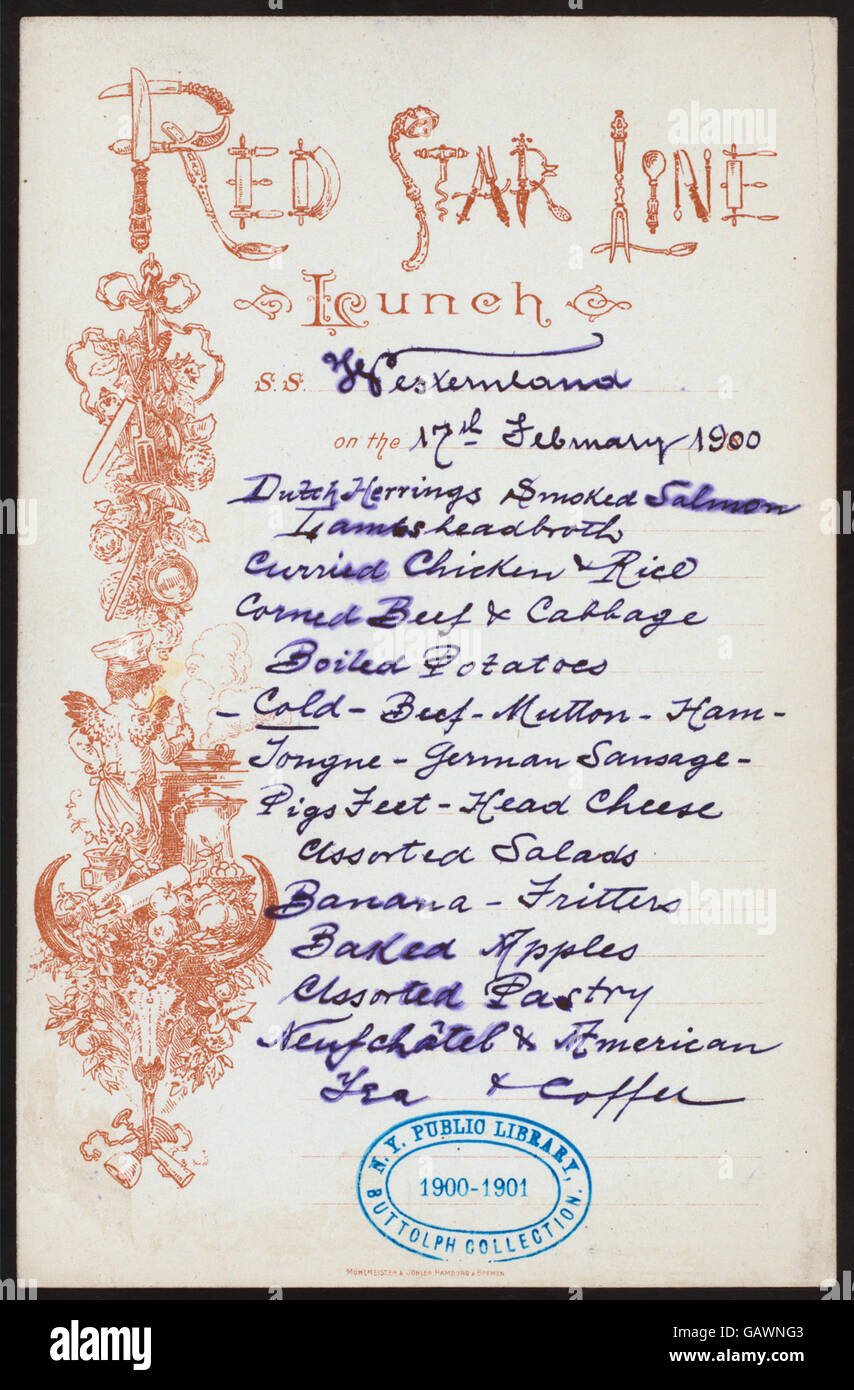 RED STAR LINE
Lunch
S.S. Westernland
on the 17th February 1900
Dutch Herrings Smoked Salmon
Lambsheadbroth
Curried Chicken & Rice
Corned Beef & Cabbage
Boiled Potatoes
- Cold - Beef - Mutton - Ham -
Tongue - German Sausage -
Pigs Feet - Head Cheese
Assorted Salads
Banana - Fritters
Baked Apples
Assorted Pastry
Neufchâtel & American
Tea & Coffee
N.Y. PUBLIC LIBRARY,
1900-1901
BUTTOLPH COLLECTION.
MÜHLMEISTER & JOHLER, HAMBURG & BREMEN
alamy
a alamy stock photo
GAWNG3
www.alamy.com